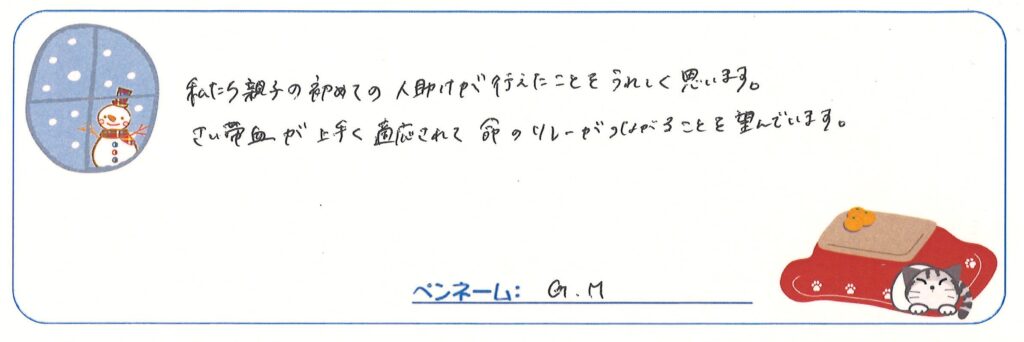 私たち親子の初めての人助けが行えたことをうれしく思います。
さい帯血が上手く適応されて命のリレーがつながることを望んでいます。
ペンネーム: G.M